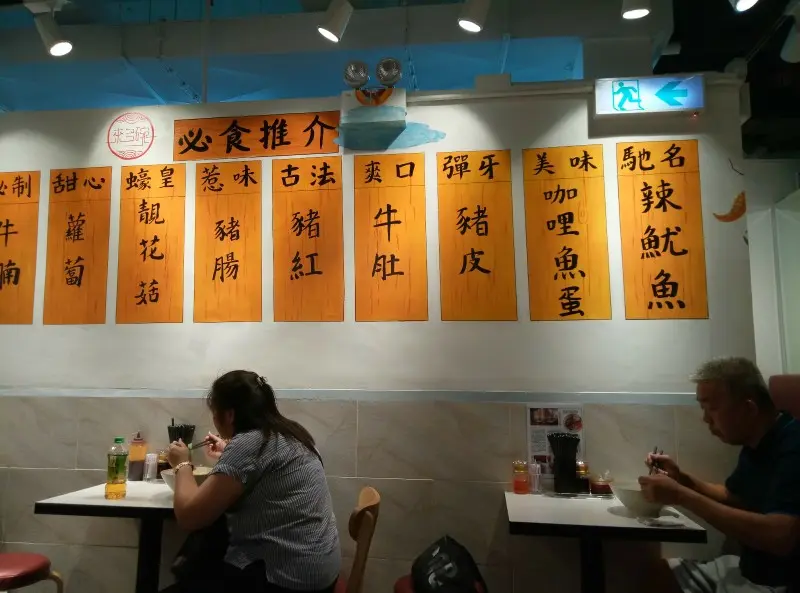 必食推介
秘制
牛腩
甜心
蘿蔔
蠔皇
靚花菇
惹味
豬腸
古法
豬紅
爽口
牛肚
彈牙
豬皮
美味
咖哩魚蛋
馳名
辣魷魚